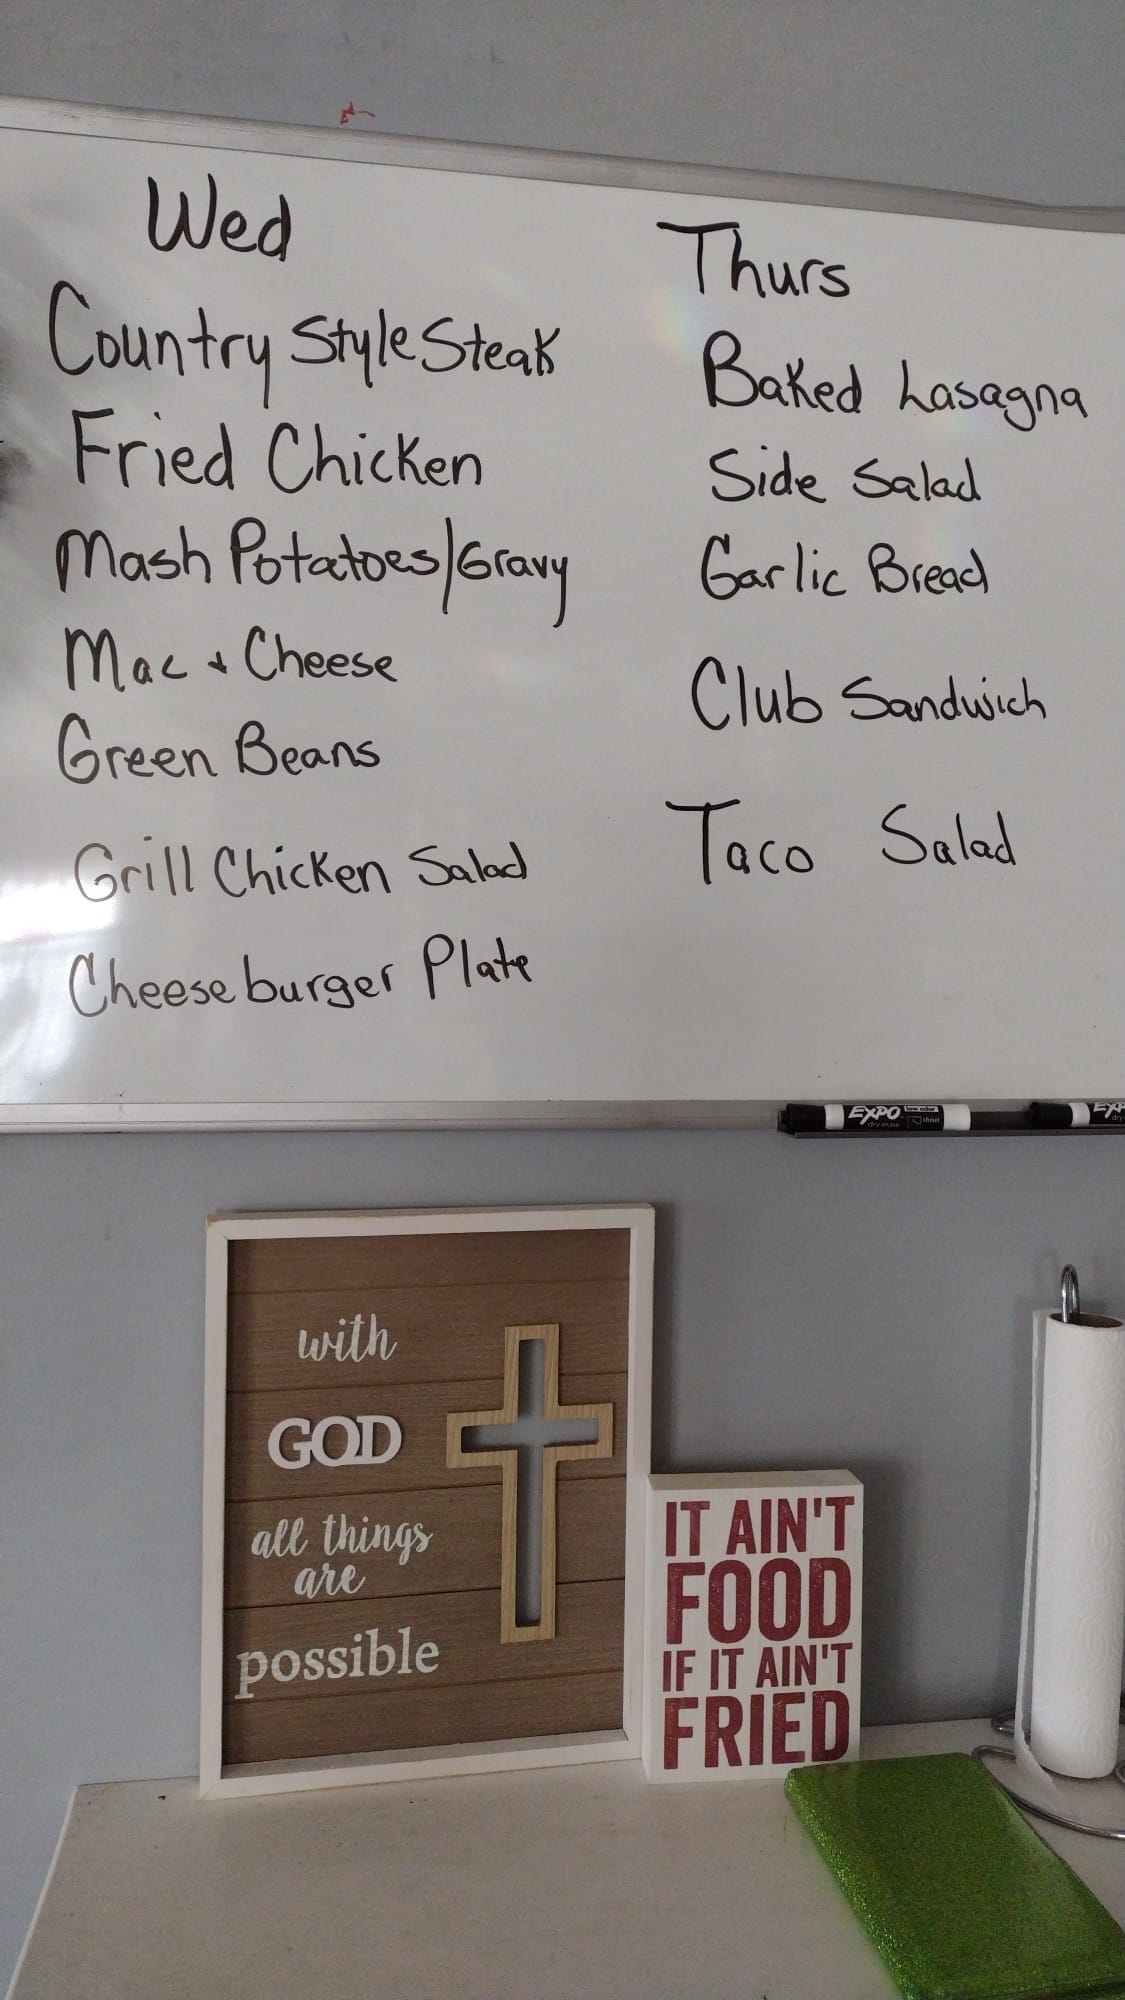 Wed
Country Style Steak
Fried Chicken
Mash Potatoes/Gravy
Mac + Cheese
Green Beans
Grill Chicken Salad
Cheeseburger Plate
Thurs
Baked Lasagna
Side Salad
Garlic Bread
Club Sandwich
Taco Salad
EXPO low odor
dry erase chisel
EXP
dry
with
GOD
all things
are
possible
IT AIN'T
FOOD
IF IT AIN'T
FRIED